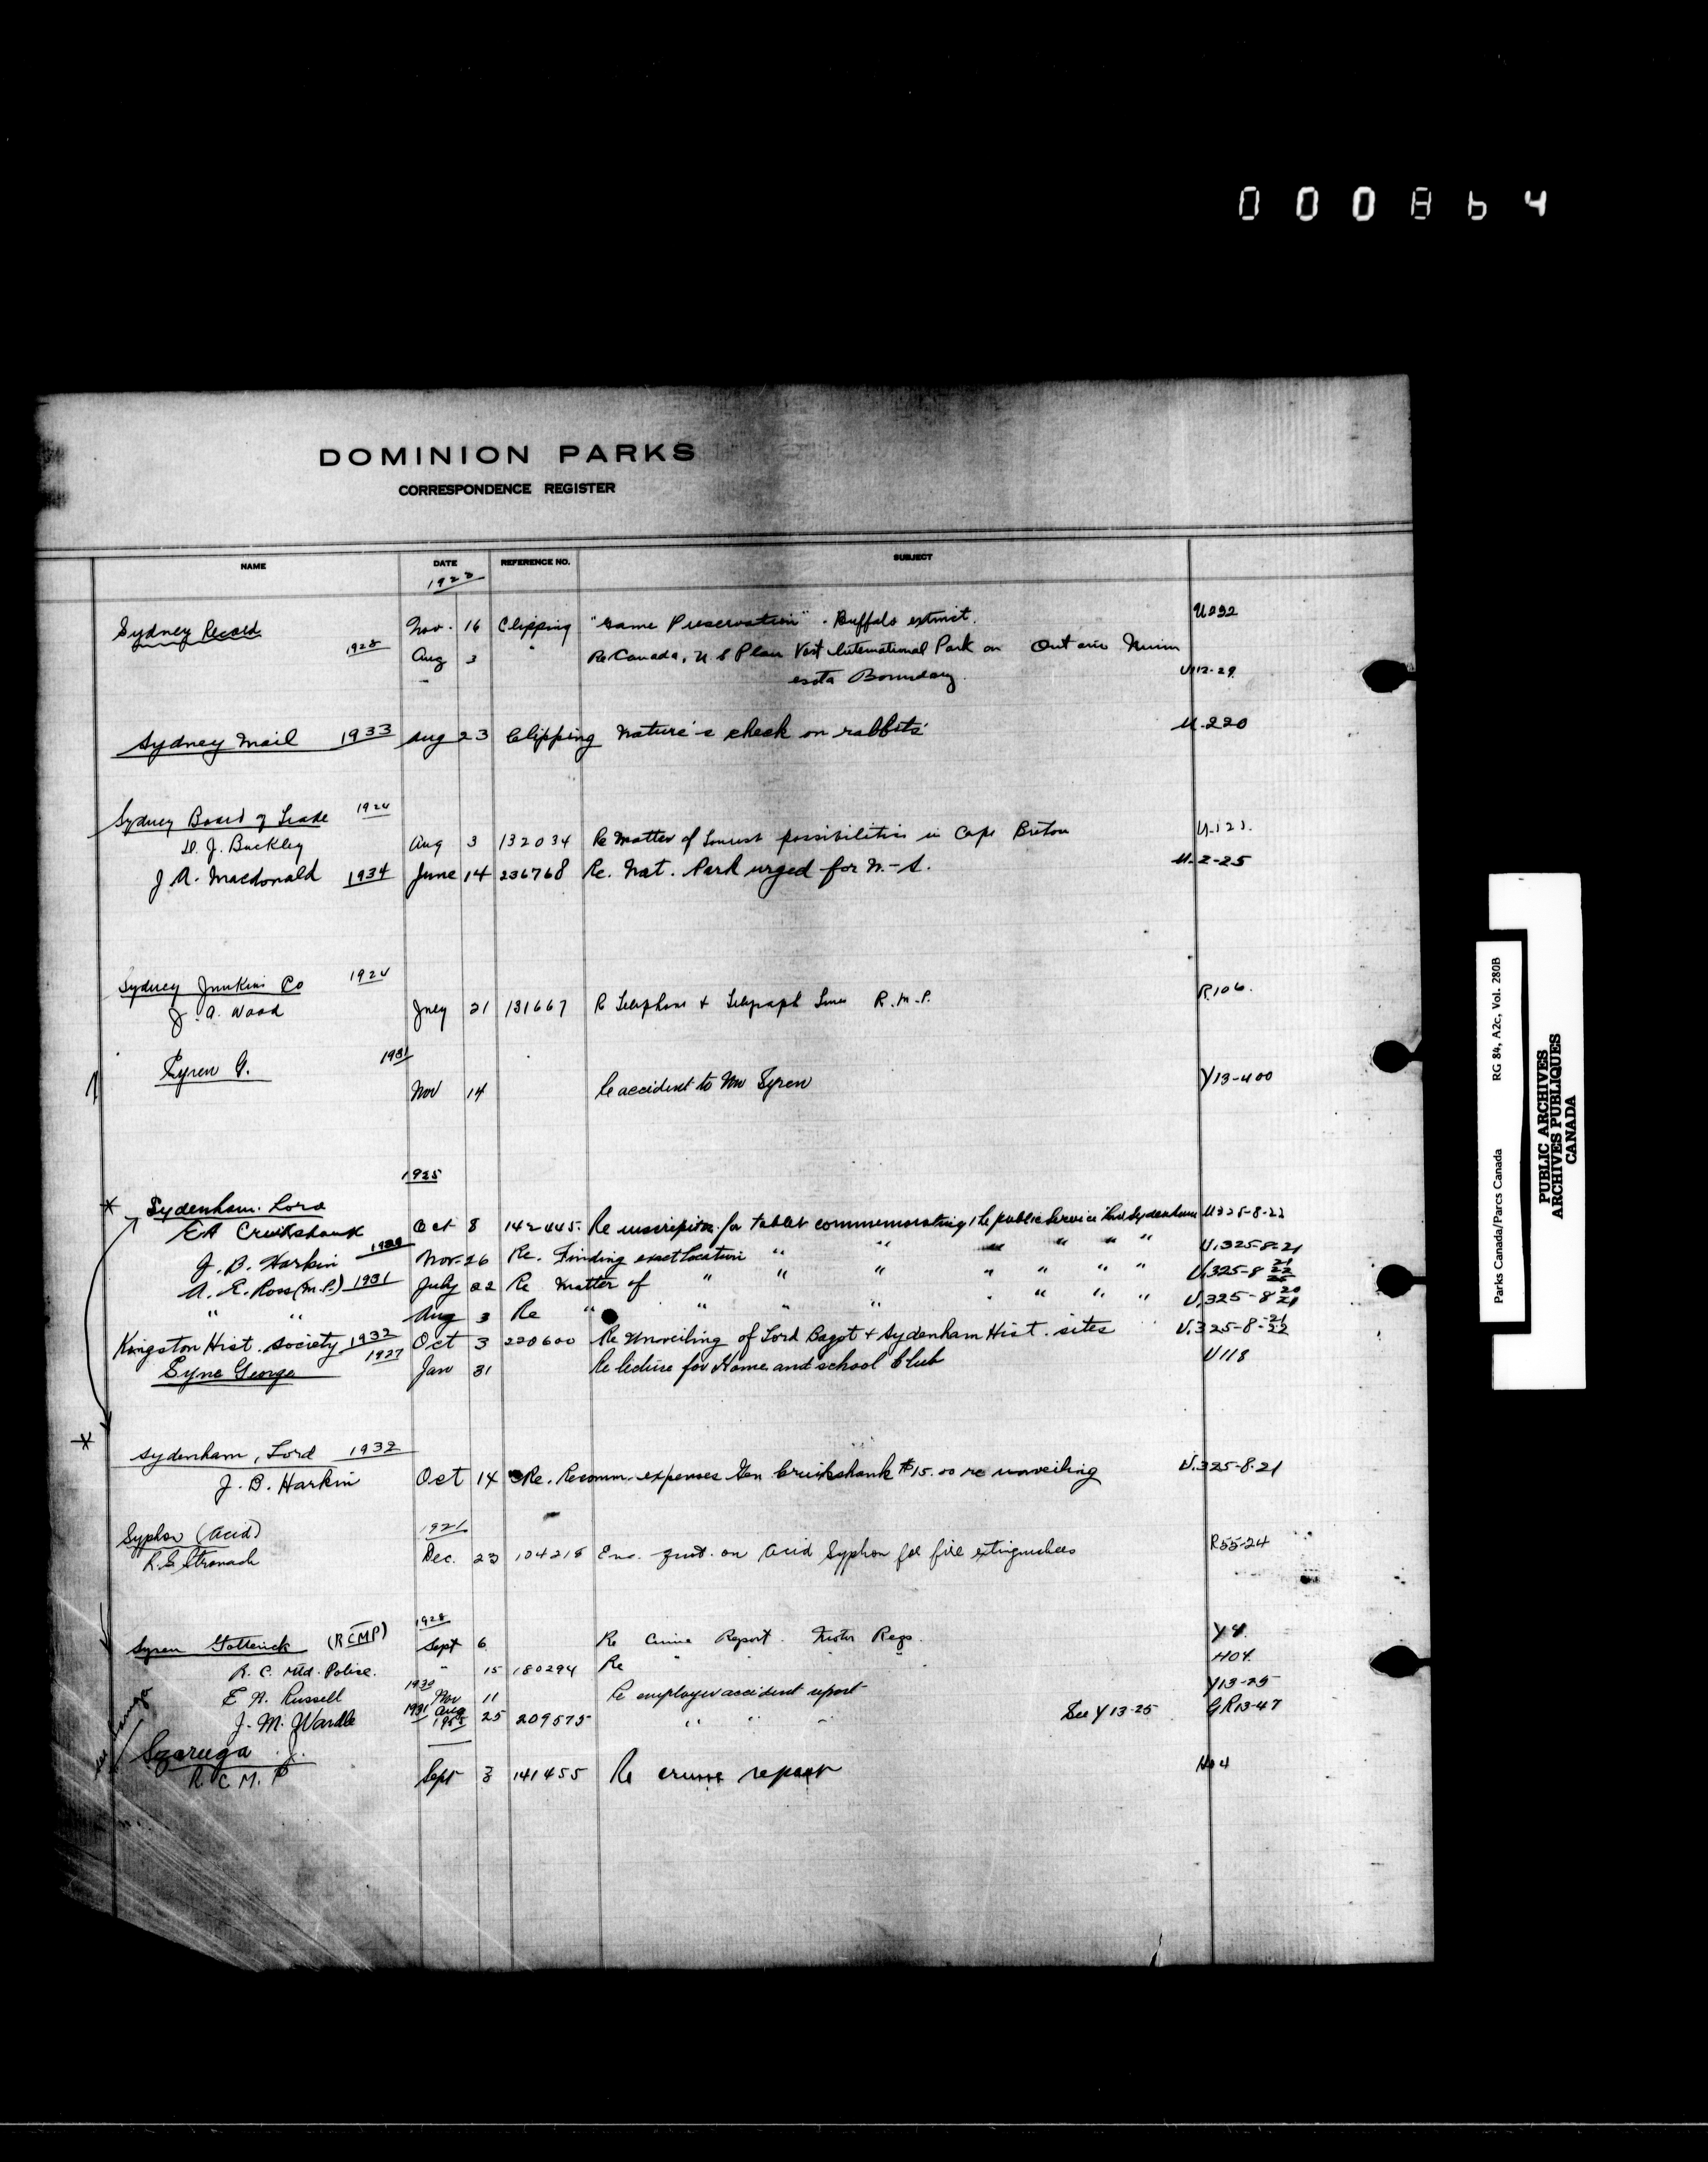 000864
DOMINION PARKS
CORRESPONDENCE REGISTER
NAME DATE REFERENCE NO. SUBJECT
1922
Sydney Record Nov. 16 Clipping "Game Preservation" - Buffalo extinct. U232
1928 Aug 3 " Re Canada, U.S Plan Vast International Park on Ontario Minn
esota Boundary. U112-29
Sydney Mail 1933 Aug 23 Clipping Nature's check on rabbits U.220
Sydney Board of Trade 1924
D. J. Buckley Aug 3 132034 Re Matter of Tourist possibilities in Cape Breton U.121.
J. A. Macdonald 1934 June 14 236768 Re. Nat. Park urged for N-S. U.2-25
Sydney Junkins Co 1924
J. A. Wood July 21 131667 Re Telephone & Telegraph Lines R.M.P. R106.
Syren G. 1931
Nov 14 Re accident to Mr Syren Y13-400
1925
* Sydenham. Lord
EA Cruikshank Oct 8 142445 Re inscription for tablet commemorating the public service Lord Sydenham U325-8-21
J. B. Harkin 1930 Nov. 26 Re. Finding exact location " " " " " " U.325-8-21
A. E. Ross (M.P.) 1931 July 22 Re Matter of " " " " " " " U.325-8 21 22 25
" " Aug 3 Re " " " " " " " " U.325-8 20 21
Kingston Hist. Society 1932 Oct 3 220600 Re Unveiling of Lord Bagot & Sydenham Hist. sites U.325-8-21 22
Syne George 1927 Jan 31 Re lecture for Home and school Club U118
* Sydenham, Lord 1932
J. B. Harkin Oct 14 Re. Recomm. expenses Gen Cruikshank $15.00 re unveiling U.325-8-21
Syphon (Acid) 1921
R.S. Stronach Dec. 23 104218 Enc. on Acid Syphon for fire extinguishers R55-24
1928
Syren Gottenick (RCMP) Sept 6 Re Crime Report. Regs. Y4.
R. C. Mtd. Police. " 15 180294 Re " " " H04.
E. N. Russell 1930 Nov 11 Re employee accident report Y13-25
J. M. Wardle 1931 Aug 25 209575 " " " See Y13-25 GR13-47
Szaruga J. 1925
R.C.M.P Sept 3 141455 Re crime report H04
Parks Canada/Parcs Canada RG 84, A2c, Vol. 280B
PUBLIC ARCHIVES
ARCHIVES PUBLIQUES
CANADA